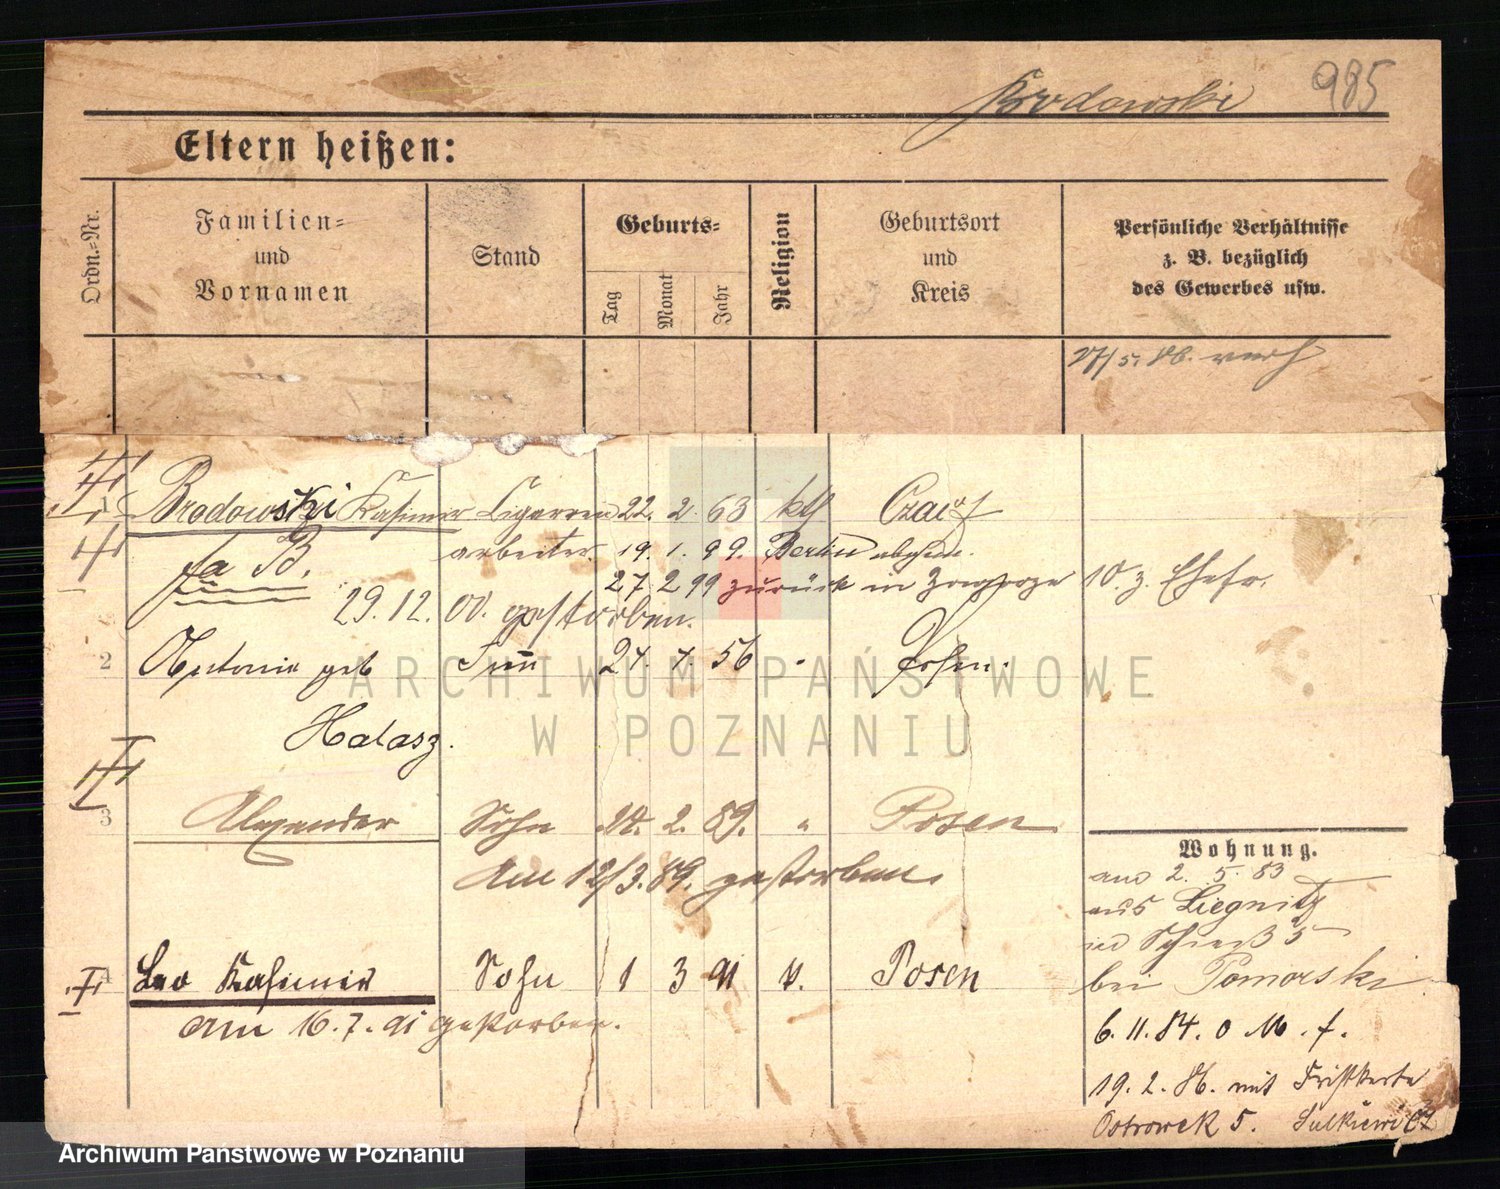 Brodowski 985
Eltern heißen:
Ordn.=Nr.
Familien=
und
Vornamen
Stand
Geburts=
Tag
Monat
Jahr
Religion
Geburtsort
und
Kreis
Persönliche Verhältnisse
z. B. bezüglich
des Gewerbes usw.
27/5. 86. verh
1 Brodowski Kasimir Cigarren 22. 2 63 kth
arbeiter. 19. 1. 99. Berlin abgem.
fa B.
27 2 99 zurück in 10. z. Ehefr.
29. 12. 00. gestorben.
2 Antonie geb Frau 27. 7. 56 Posen.
Halasz.
3 Alexander Sohn 24. 2. 89. " Posen
Am 12/3. 89. gestorben.
4 Leo Kasimir Sohn 1 3 91 k. Posen
am 16. 7. 91 gestorben.
Wohnung.
am 2. 5. 83
aus Liegnitz
in Schieß 5
bei Pomorski
6. 11. 84. o M. f.
19. 2. 86. mit
Ostrowek 5. Sulkiewicz
ARCHIWUM PAŃSTWOWE
W POZNANIU
Archiwum Państwowe w Poznaniu